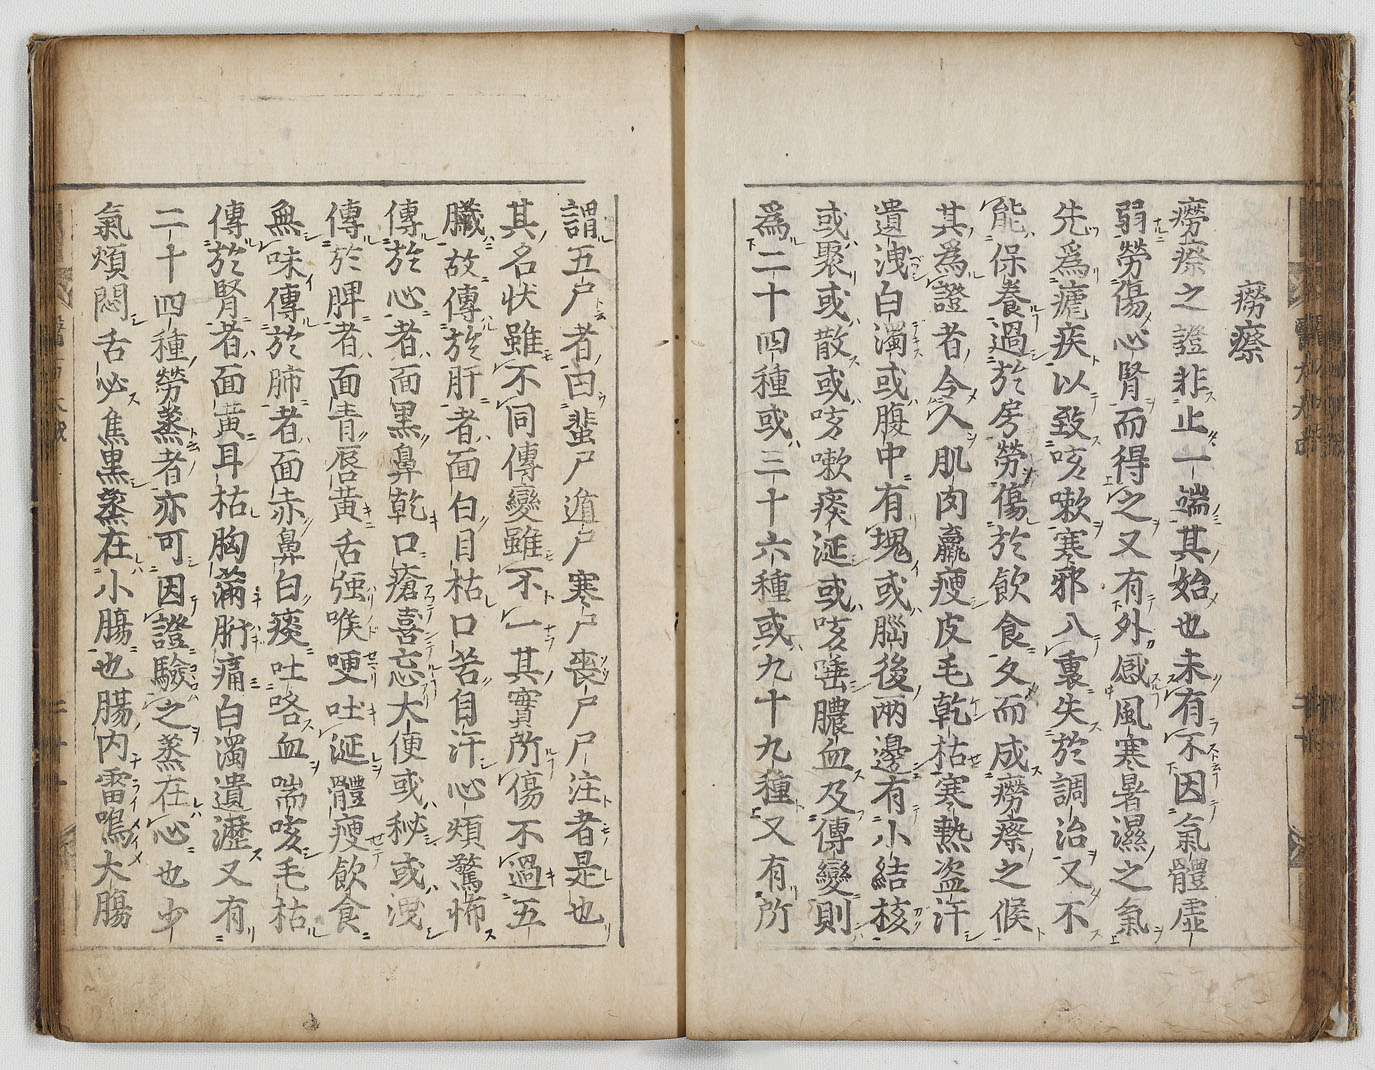 癆瘵
癆瘵之證非止一端其始也未有不因氣體虛
弱勞傷心腎而得之又有外感風寒暑濕之氣
先爲瘧疾以致咳嗽寒邪入裏失於調治又不
能保養過於房勞傷於飲食久而成癆瘵之候
其爲證者令人肌肉羸瘦皮毛乾枯寒熱盗汗
遺洩白濁或腹中有塊或腦後兩邊有小結核
或聚或散或咳嗽痰涎或咳唾膿血及傳變則
爲二十四種或三十六種或九十九種又有所
謂五尸者曰蜚尸遁尸寒尸喪尸尸注者是也
其名状雖不同傳變雖不一其實所傷不過五
臟故傳於肝者面白目枯口苦自汗心煩驚怖
傳於心者面黒鼻乾口瘡喜忘大便或秘或洩
傳於脾者面青唇黄舌强喉哽吐涎體瘦飲食
無味傳於肺者面赤鼻白痰吐咯血喘咳毛枯
傳於腎者面黄耳枯胸滿胻痛白濁遺瀝又有
二十四種勞蒸者亦可因證驗之蒸在心也少
氣煩悶舌必焦黒蒸在小膓也膓内雷鳴大膓